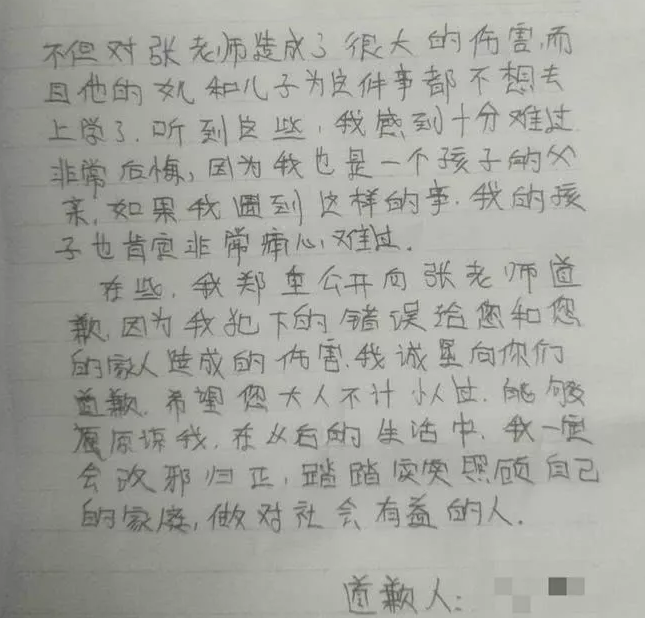 不但对张老师造成了很大的伤害,而
且他的女儿和儿子为这件事都不想去
上学了.听到这些,我感到十分难过
非常后悔,因为我也是一个孩子的父
亲,如果我遇到这样的事.我的孩
子也肯定非常痛心,难过.
在些,我郑重公开向张老师道
歉,因为我犯下的错误给您和您
的家人造成的伤害.我诚恳向你们
道歉.希望您大人不计小人过.能够
原谅我.在以后的生活中.我一定
会改邪归正,踏踏实实照顾自己
的家庭,做对社会有益的人.
道歉人: